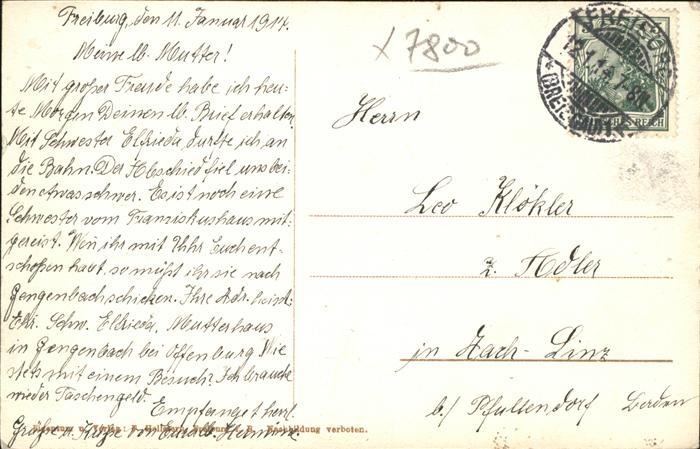 Freiburg, den 11. Januar 1914.
Meine lb. Mutter!
Mit großer Freude habe ich heu-
te Morgen Deinen lb. Brief erhalten.
Mit Schwester Elfrieda durfte ich an
die Bahn. Der Abschied fiel uns bei-
den etwas schwer. Es ist noch eine
Schwester vom Franziskushaus mit-
gereist. Wenn ihr mit Uhr Euch ent-
schoßen habt, so müßt ihr sie nach
Gengenbach schicken. Ihre Adr. heißt:
Ehr. Schw. Elfrieda, Mutterhaus
in Gengenbach bei Offenburg. Wie
stets mit einem Besuch? Ich brauche
wieder Taschengeld.
Empfanget herzl.
Grüße u. Küße von Eurer lb. Hermine.
Eigentum u. Verlag: Freiburg i. B. Nachbildung verboten.
x 7800
FREIBURG
12.1.14.7-8V.
* (BREISGAU) 1
DEUTSCHES REICH
Herrn
Leo Klökler
z. Adler
in Aach-Linz
b/ Pfullendorf Baden